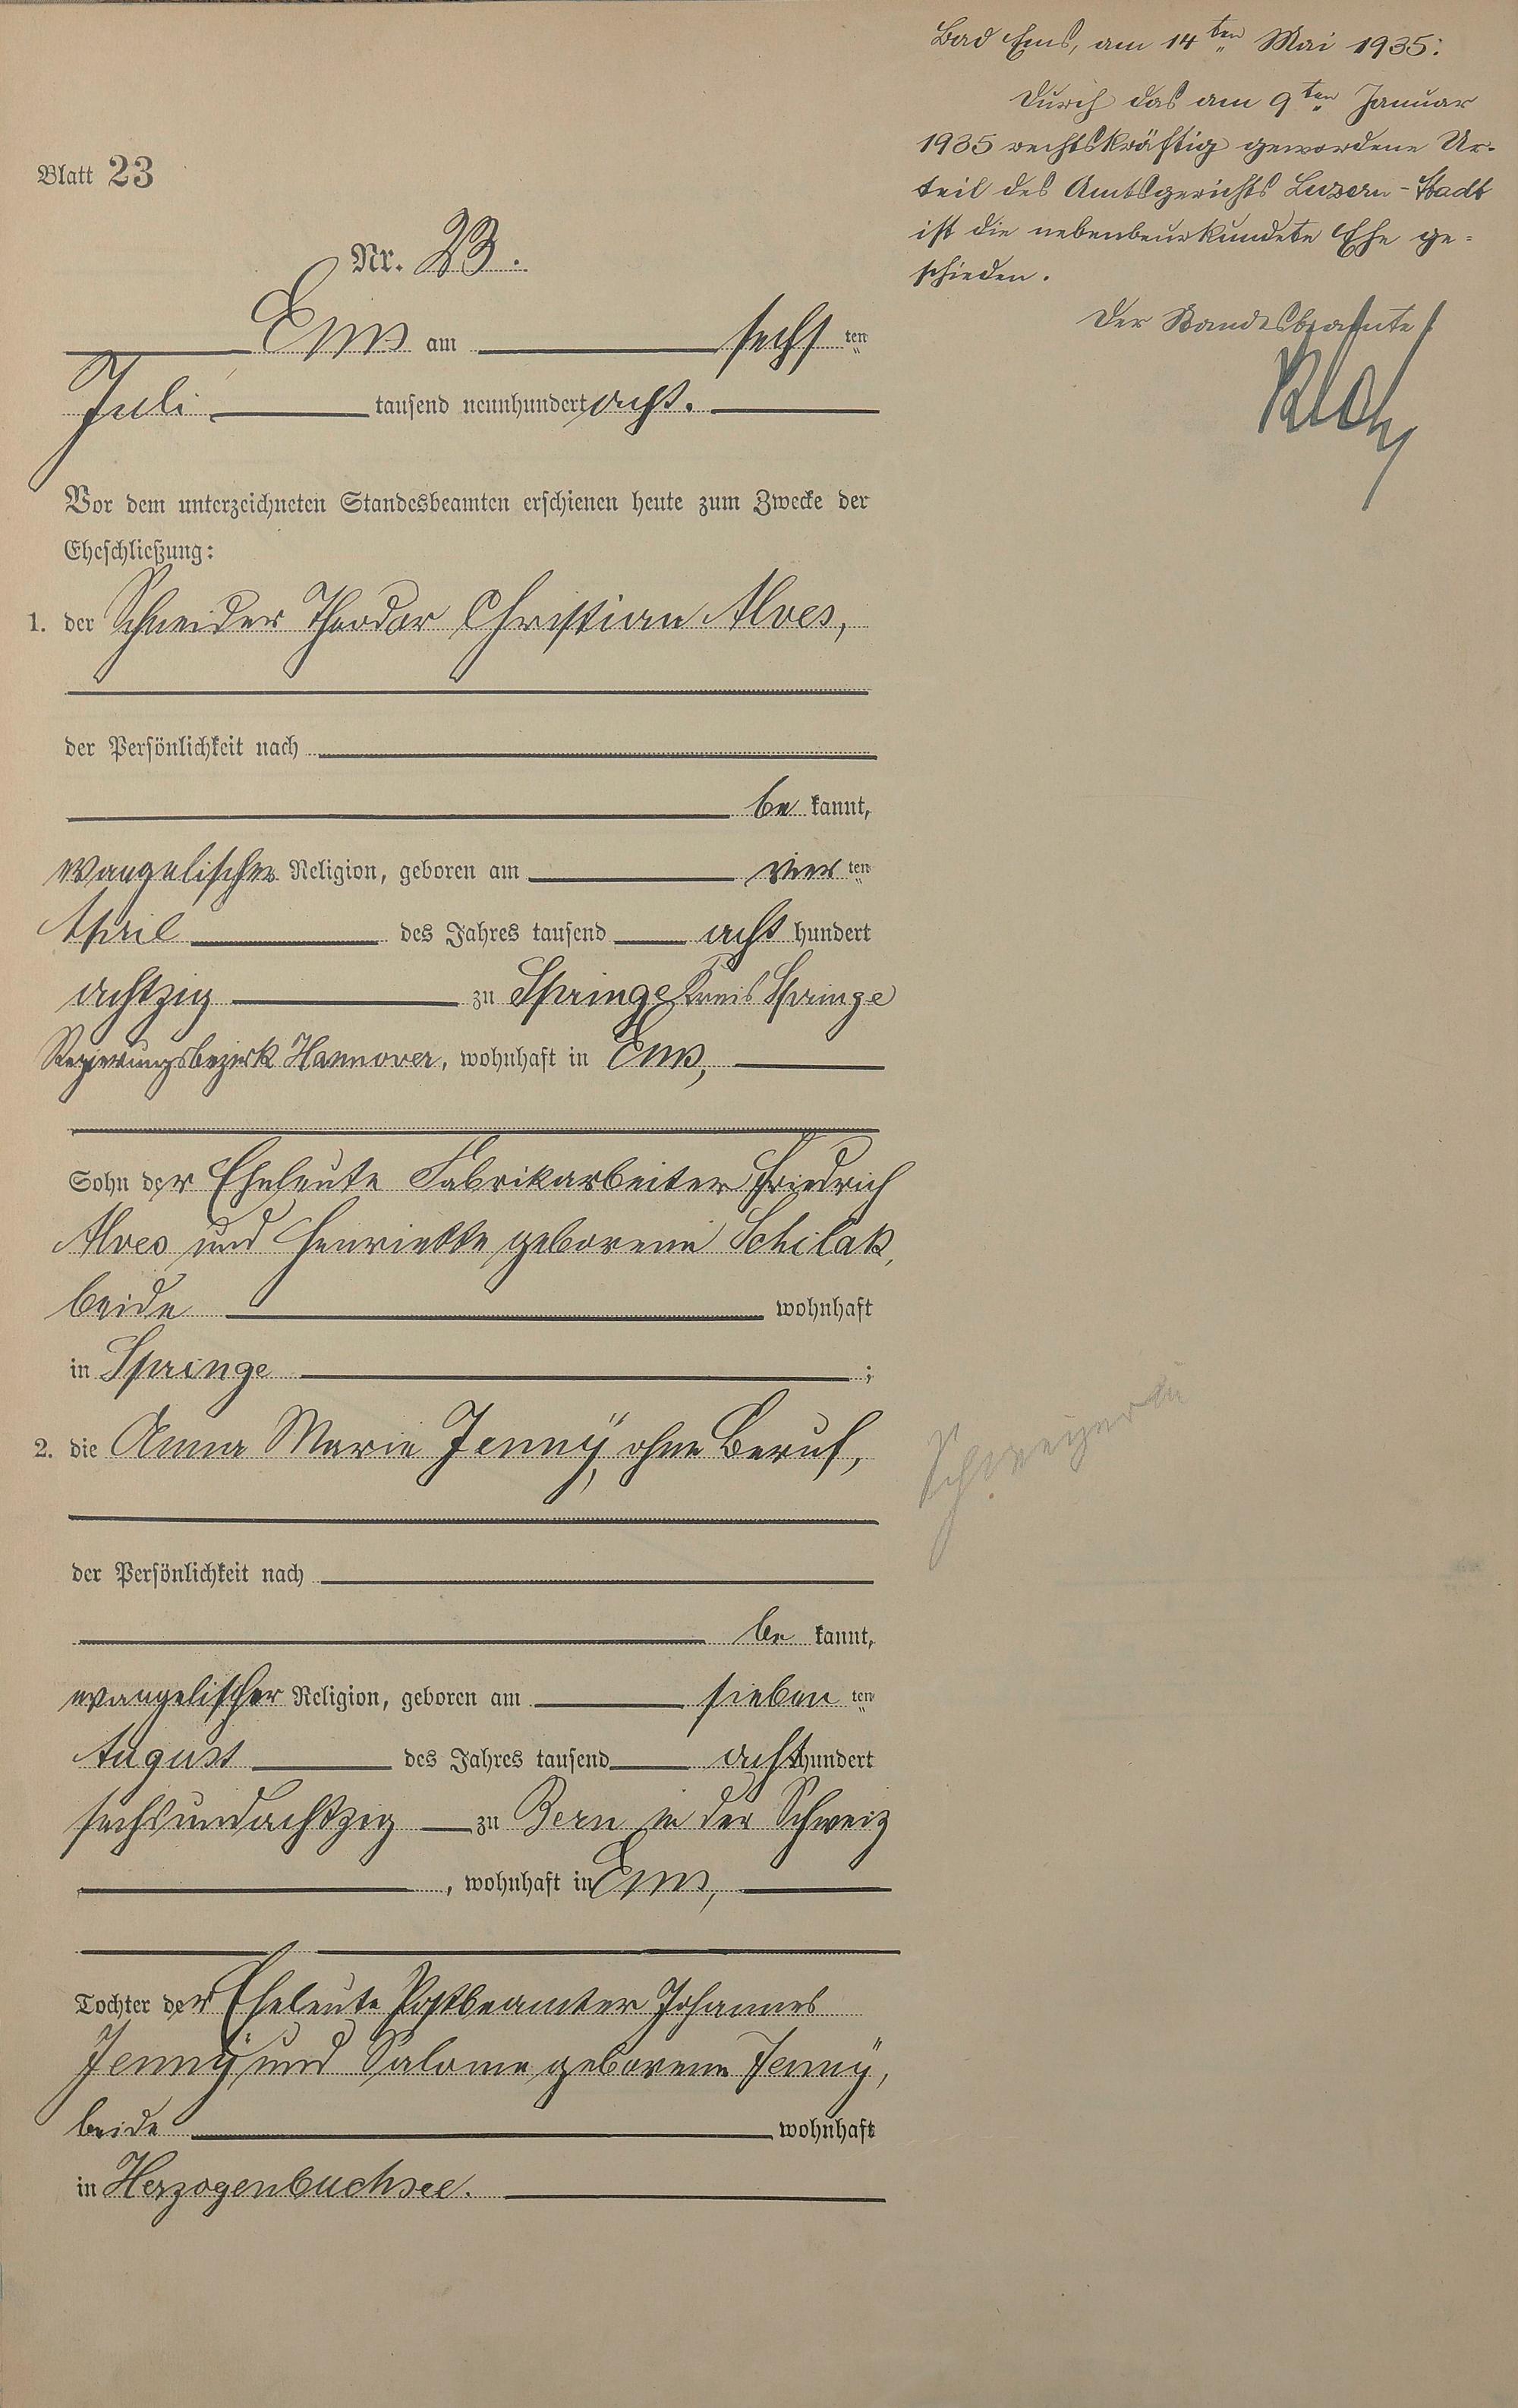 Blatt 23
Nr. 23.
Ems am sechs ten
Juli tausend neunhundert acht.
Vor dem unterzeichneten Standesbeamten erschienen heute zum Zwecke der
Eheschließung:
1. der Schneider Theodor Christian Alves,
der Persönlichkeit nach
be kannt,
evangelischer Religion, geboren am vier ten
April des Jahres tausend acht hundert
achtzig zu Springe Kreis Springe
Regierungsbezirk Hannover, wohnhaft in Ems,
Sohn der Eheleute Fabrikarbeiter Friedrich
Alves und Henriette geborene Schilak,
beide wohnhaft
in Springe ;
2. die Anna Marie Jennÿ, ohne Beruf,
der Persönlichkeit nach
be kannt,
evangelischer Religion, geboren am sieben ten
August des Jahres tausend acht hundert
sechsundachtzig zu Bern in der Schweiz
, wohnhaft in Ems,
Tochter der Eheleute Postbeamter Johannes
Jennÿ und Salome geborene Jennÿ,
beide wohnhaft
in Herzogenbuchsee.
Bad Ems, am 14ten Mai 1935:
Durch das am 9ten Januar
1935 rechtskräftig gewordene Ur-
teil des Amtsgerichts Luzern-Stadt
ist die nebenbeurkundete Ehe ge-
schieden.
Der Standesbeamte
Schweizerin